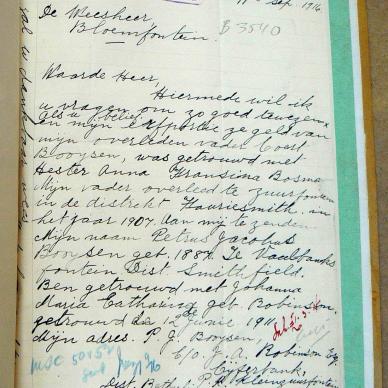 Sep. 1916
De Weesheer,
B 3540
Bloemfontein.
Waarde Heer,
Hiermede wil ik
u vragen om zo goed te wezen
als u belief
en mijn erfportie ze geld van
mijn overleden vader Coert
Booysen, was getrouwd met
Hester Anna Fransina Bosma
Mijn vader overleed te Zuurfontein
in de distrikt Fauriesmith. in
het jaar 1907. Aan mij te zenden
Mijn naam Petrus Jacobus
Booysen geb. 1887. Te Vaalbanks
fontein Dist. Smithfield.
Ben getrouwd met Johanna
Maria Catharina geb. Robinson.
getrouwd 12 Junie 1911.
Mijn adres. P. J. Booysen,
c/o J. A. Robinson Esq.
Dist. Bethul